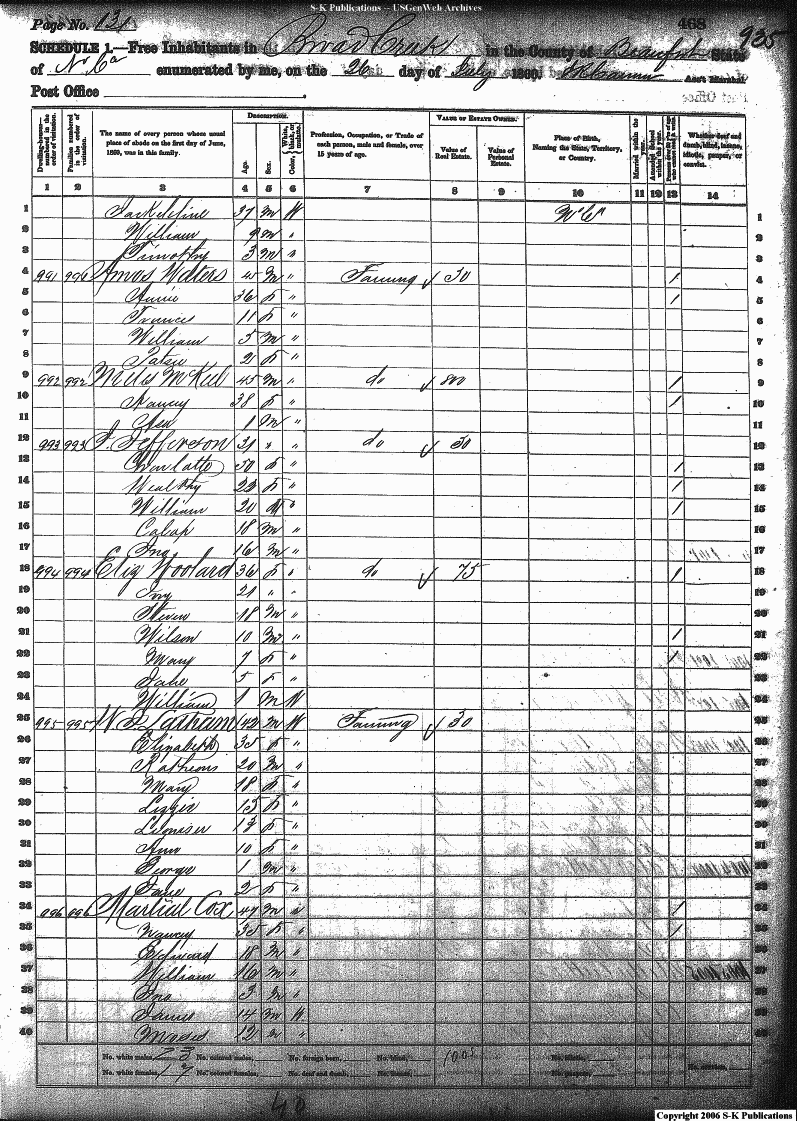 S-K Publications -- USGenWeb Archives
Page No. 131 468 935
SCHEDULE 1.—Free Inhabitants in Broad Creek in the County of Beaufort State
of No Ca enumerated by me, on the 26 day of July 1860. Ass't Marshal
Post Office
DESCRIPTION. VALUE OF ESTATE OWNED.
Dwelling-house—numbered in the order of visitation. Families numbered in the order of visitation. The name of every person whose usual place of abode on the first day of June, 1860, was in this family. Age. Sex. Color, White, black, or mulatto. Profession, Occupation, or Trade of each person, male and female, over 15 years of age. Value of Real Estate. Value of Personal Estate. Place of Birth, Naming the State, Territory, or Country. Married within the year. Attended School within the year. Persons over 20 y'rs of age who cannot read & write. Whether deaf and dumb, blind, insane, idiotic, pauper, or convict.
1 2 3 4 5 6 7 8 9 10 11 12 13 14
1 37 m W No Ca 1
2 William 9 m " 2
3 Timothy 3 m " 3
4 991 991 Amos Waters 45 m " Farming 30 / 4
5 Annie 36 f " / 5
6 Frances 11 f " 6
7 William 5 m " 7
8 Patsie 2 f " 8
9 992 992 McKeel 45 m " do 800 / 9
10 Nancy 38 f " / 10
11 Asa 1 m " 11
12 993 993 J. Jefferson 31 " " do 50 12
13 Charlotte 50 f " / 13
14 Wealthy 23 f " / 14
15 William 20 m " / 15
16 18 m " 16
17 Jno 16 m " 17
18 994 994 Eliz Woolard 36 f " do 75 / 18
19 21 " " 19
20 Steven 18 m " 20
21 Wilson 10 m " / 21
22 Mary 7 f " / 22
23 5 f " 23
24 William 1 m W 24
25 995 995 W Latham 42 m W Farming 30 25
26 Elizabeth 35 f " 26
27 20 m " 27
28 Mary 18 f " 28
29 15 f " 29
30 f " 30
31 Ann 10 f " 31
32 George 1 m " 32
33 2 f " 33
34 996 996 Cox 47 m " / 34
35 Nancy 35 f " / 35
36 Edward 18 m " 36
37 William 16 m " 37
38 Jno 3 m " 38
39 James 14 m W 39
40 Moses 12 m " 40
No. white males, 23 No. colored males, No. foreign born, No. blind, 1005 No. idiotic,
No. white females, 17 No. colored females, No. deaf and dumb, No. insane, No. paupers, No. convicts,
40
Copyright 2006 S-K Publications